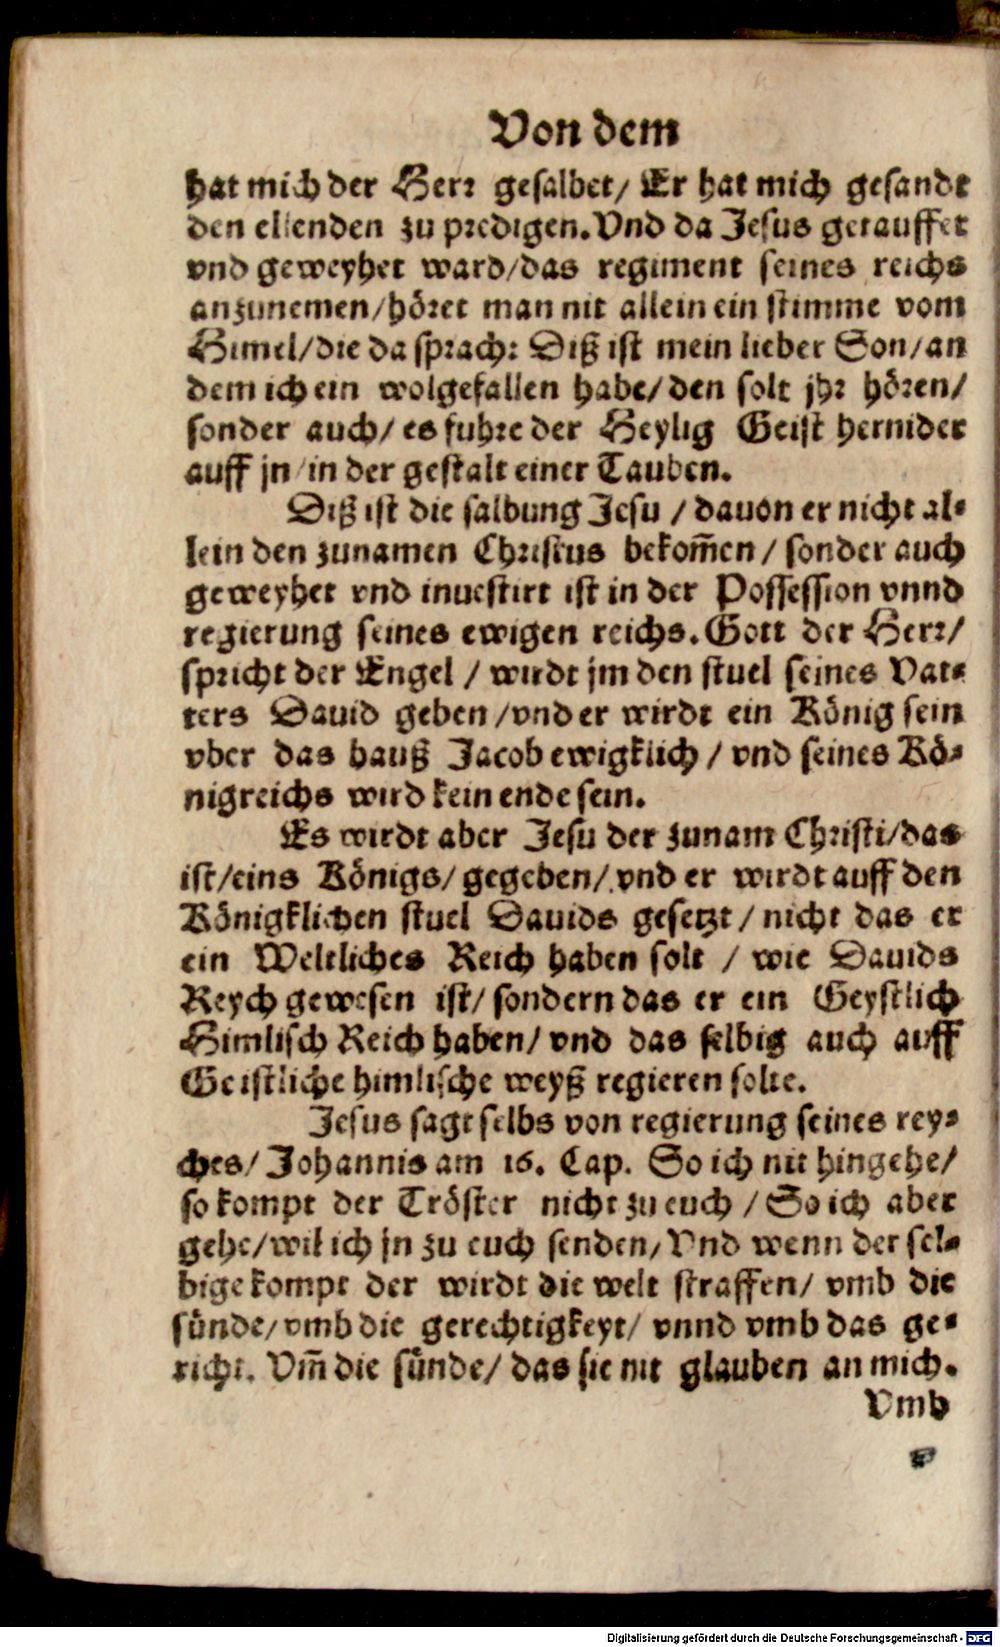 Von dem
hat mich der Herr gesalbet/ Er hat mich gesandt
den ellenden zu predigen. Vnd da Jesus getauffet
vnd geweyhet ward/das regiment seines reichs
anzunemen/höret man nit allein ein stimme vom
Himel/die da sprach: Diß ist mein lieber Son/an
dem ich ein wolgefallen habe/den solt jhr hören/
sonder auch/ es fuhre der Heylig Geist hernider
auff jn/in der gestalt einer Tauben.
Diß ist die salbung Jesu / dauon er nicht al-
lein den zunamen Christus bekom̃en / sonder auch
geweyhet vnd inuestirt ist in der Possession vnnd
regierung seines ewigen reichs. Gott der Herr/
spricht der Engel / wirdt jm den stuel seines Vat-
ters Dauid geben /vnd er wirdt ein König sein
vber das hauß Jacob ewigklich / vnd seines Kö-
nigreichs wird kein ende sein.
Es wirdt aber Jesu der zunam Christi/das
ist/eins Königs/ gegeben/ vnd er wirdt auff den
Königklichen stuel Dauids gesetzt / nicht das er
ein Weltliches Reich haben solt / wie Dauids
Reych gewesen ist/ sondern das er ein Geystlich
Himlisch Reich haben/ vnd das selbig auch auff
Geistliche himlische weyß regieren solte.
Jesus sagt selbs von regierung seines rey-
ches/ Johannis am 16. Cap. So ich nit hingehe/
so kompt der Tröster nicht zu euch / So ich aber
gehe/wil ich jn zu euch senden/ Vnd wenn der sel-
bige kompt der wirdt die welt straffen/ vmb die
sünde/vmb die gerechtigkeyt/ vnnd vmb das ge-
richt. Vm̃ die sünde/ das sie nit glauben an mich.
Vmb
Digitalisierung gefördert durch die Deutsche Forschungsgemeinschaft - DFG